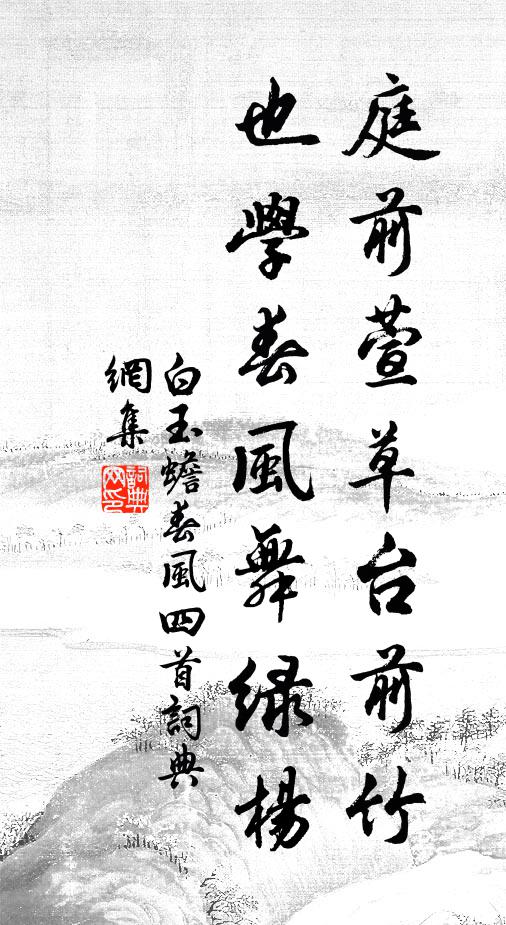 庭前萱草台前竹
也學春風舞绿楊
白玉蟾春風四首詞典
網集
詞典
网印